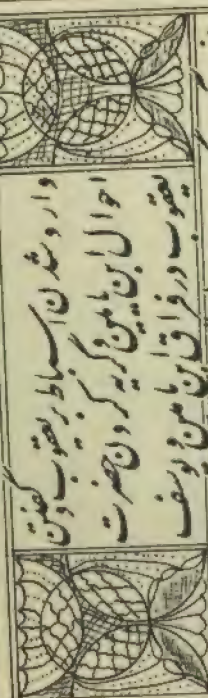 وارد شدن اسباط بر یعقوب و گفتن
احوال ابن یامین و گریه کردن حضرت
یعقوب در فراق ابن یامین و یوسف